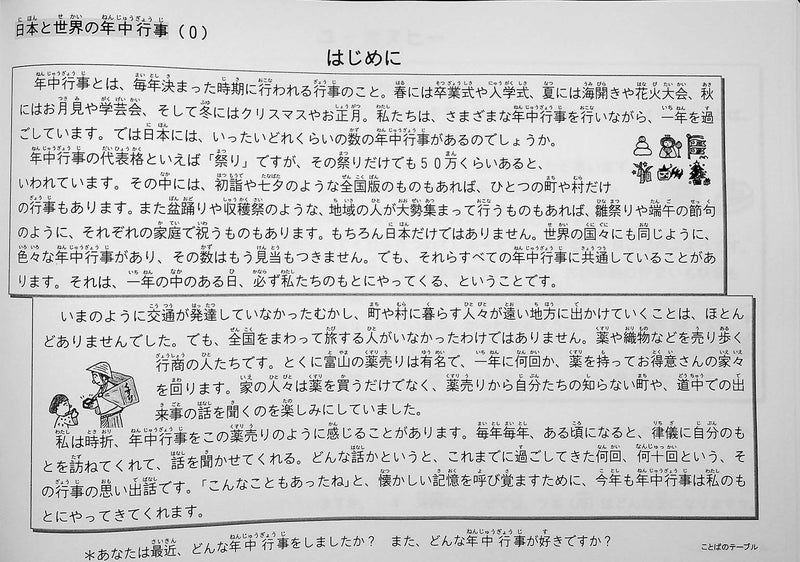 日本と世界の年中行事（0）
はじめに
年中行事とは、毎年決まった時期に行われる行事のこと。春には卒業式や入学式、夏には海開きや花火大会、秋
にはお月見や学芸会、そして冬にはクリスマスやお正月。私たちは、さまざまな年中行事を行いながら、一年を過
ごしています。では日本には、いったいどれくらいの数の年中行事があるのでしょうか。
年中行事の代表格といえば「祭り」ですが、その祭りだけでも５０万くらいあると、
いわれています。その中には、初詣や七夕のような全国版のものもあれば、ひとつの町や村だけ
の行事もあります。また盆踊りや収穫祭のような、地域の人が大勢集まって行うものもあれば、雛祭りや端午の節句
のように、それぞれの家庭で祝うものもあります。もちろん日本だけではありません。世界の国々にも同じように、
色々な年中行事があり、その数はもう見当もつきません。でも、それらすべての年中行事に共通していることがあ
ります。それは、一年の中のある日、必ず私たちのもとにやってくる、ということです。
いまのように交通が発達していなかったむかし、町や村に暮らす人々が遠い地方に出かけていくことは、ほとん
どありませんでした。でも、全国をまわって旅する人がいなかったわけではありません。薬や織物などを売り歩く
行商の人たちです。とくに富山の薬売りは有名で、一年に何回か、薬を持ってお得意さんの家々
を回ります。家の人々は薬を買うだけでなく、薬売りから自分たちの知らない町や、道中での出
来事の話を聞くのを楽しみにしていました。
私は時折、年中行事をこの薬売りのように感じることがあります。毎年毎年、ある頃になると、律儀に自分のも
とを訪ねてくれて、話を聞かせてくれる。どんな話かというと、これまでに過ごしてきた何回、何十回という、そ
の行事の思い出話です。「こんなこともあったね」と、懐かしい記憶を呼び覚ますために、今年も年中行事は私のも
とにやってきてくれます。
＊あなたは最近、どんな年中行事をしましたか？　また、どんな年中行事が好きですか？
ことばのテーブル